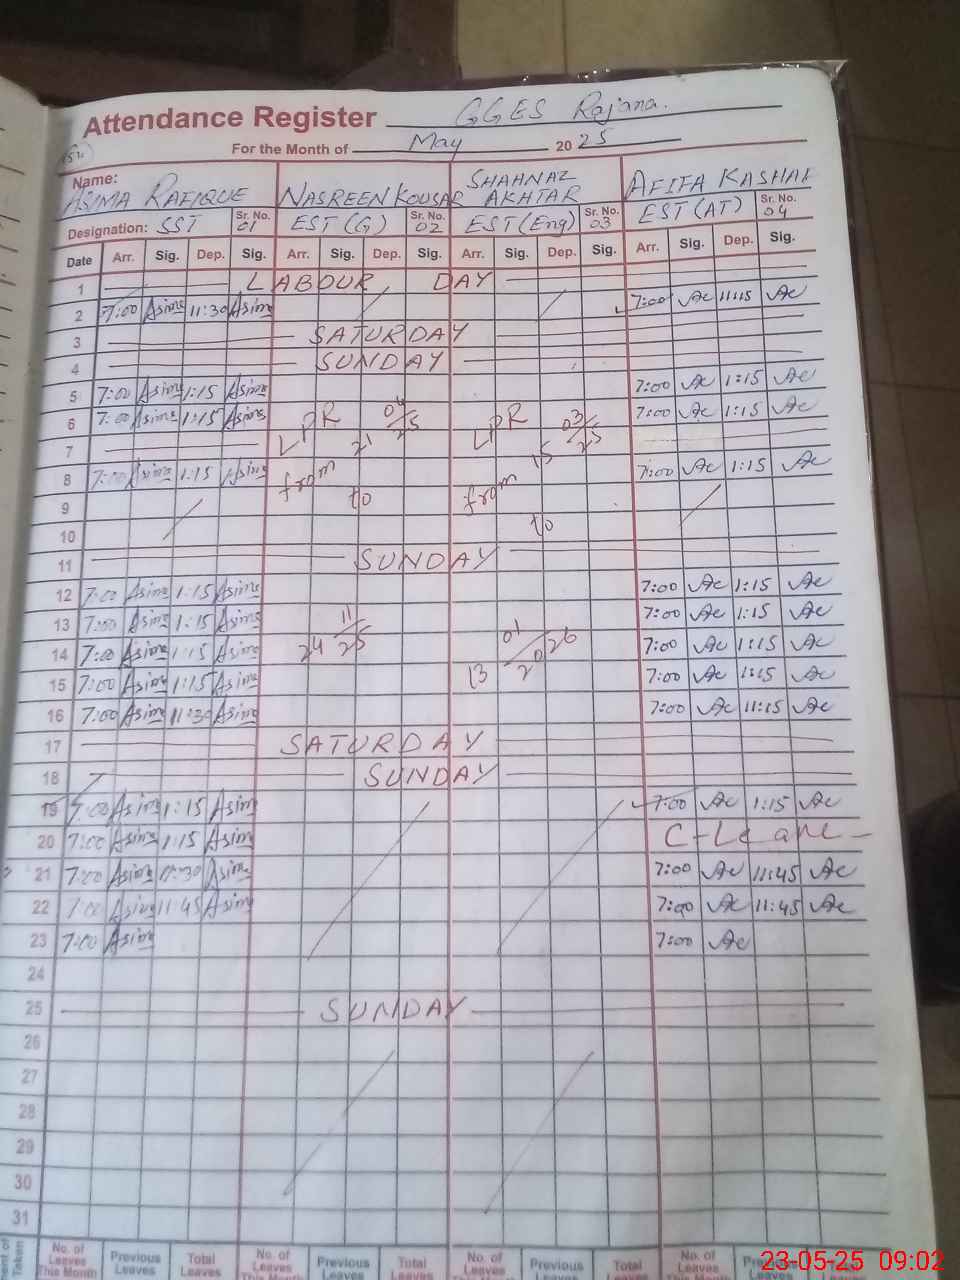 Attendance Register GGES Rajana.
For the Month of May 2025
Name: ASIMA RAFIQUE NASREEN KOUSAR SHAHNAZ AKHTAR AFIFA KASHAF
Designation: SST Sr. No. 01 EST (G) Sr. No. 02 EST (Eng) Sr. No. 03 EST (AT) Sr. No. 04
Date Arr. Sig. Dep. Sig. Arr. Sig. Dep. Sig. Arr. Sig. Dep. Sig. Arr. Sig. Dep. Sig.
1 LABOUR DAY
2 7:00 Asima 11:30 Asima 7:00 Ac 11:15 Ac
3 SATURDAY
4 SUNDAY
5 7:00 Asima 1:15 Asima 7:00 Ac 1:15 Ac
6 7:00 Asima 1:15 Asima LPR 21 04/25 LPR 15 03/25 7:00 Ac 1:15 Ac
7
8 7:00 Asima 1:15 Asima from to from to 7:00 Ac 1:15 Ac
9
10
11 SUNDAY
12 7:00 Asima 1:15 Asima 7:00 Ac 1:15 Ac
13 7:00 Asima 1:15 Asima 7:00 Ac 1:15 Ac
14 7:00 Asima 1:15 Asima 24 11/25 13 01/2026 7:00 Ac 1:15 Ac
15 7:00 Asima 1:15 Asima 7:00 Ac 1:15 Ac
16 7:00 Asima 11:30 Asima 7:00 Ac 11:15 Ac
17 SATURDAY
18 SUNDAY
19 7:00 Asima 1:15 Asima 7:00 Ac 1:15 Ac
20 7:00 Asima 1:15 Asima
21 7:00 Asima 11:30 Asima 7:00 Ac 11:45 Ac
22 7:00 Asima 11:45 Asima 7:00 Ac 11:45 Ac
23 7:00 Asima 7:00 Ac
24
25 SUNDAY
26
27
28
29
30
31
Taken No. of Leaves This Month Previous Leaves Total Leaves No. of Leaves This Month Previous Leaves Total Leaves No. of Leaves Previous Leaves Total Leaves No. of Leaves This Month Previous
23-05-25 09:02